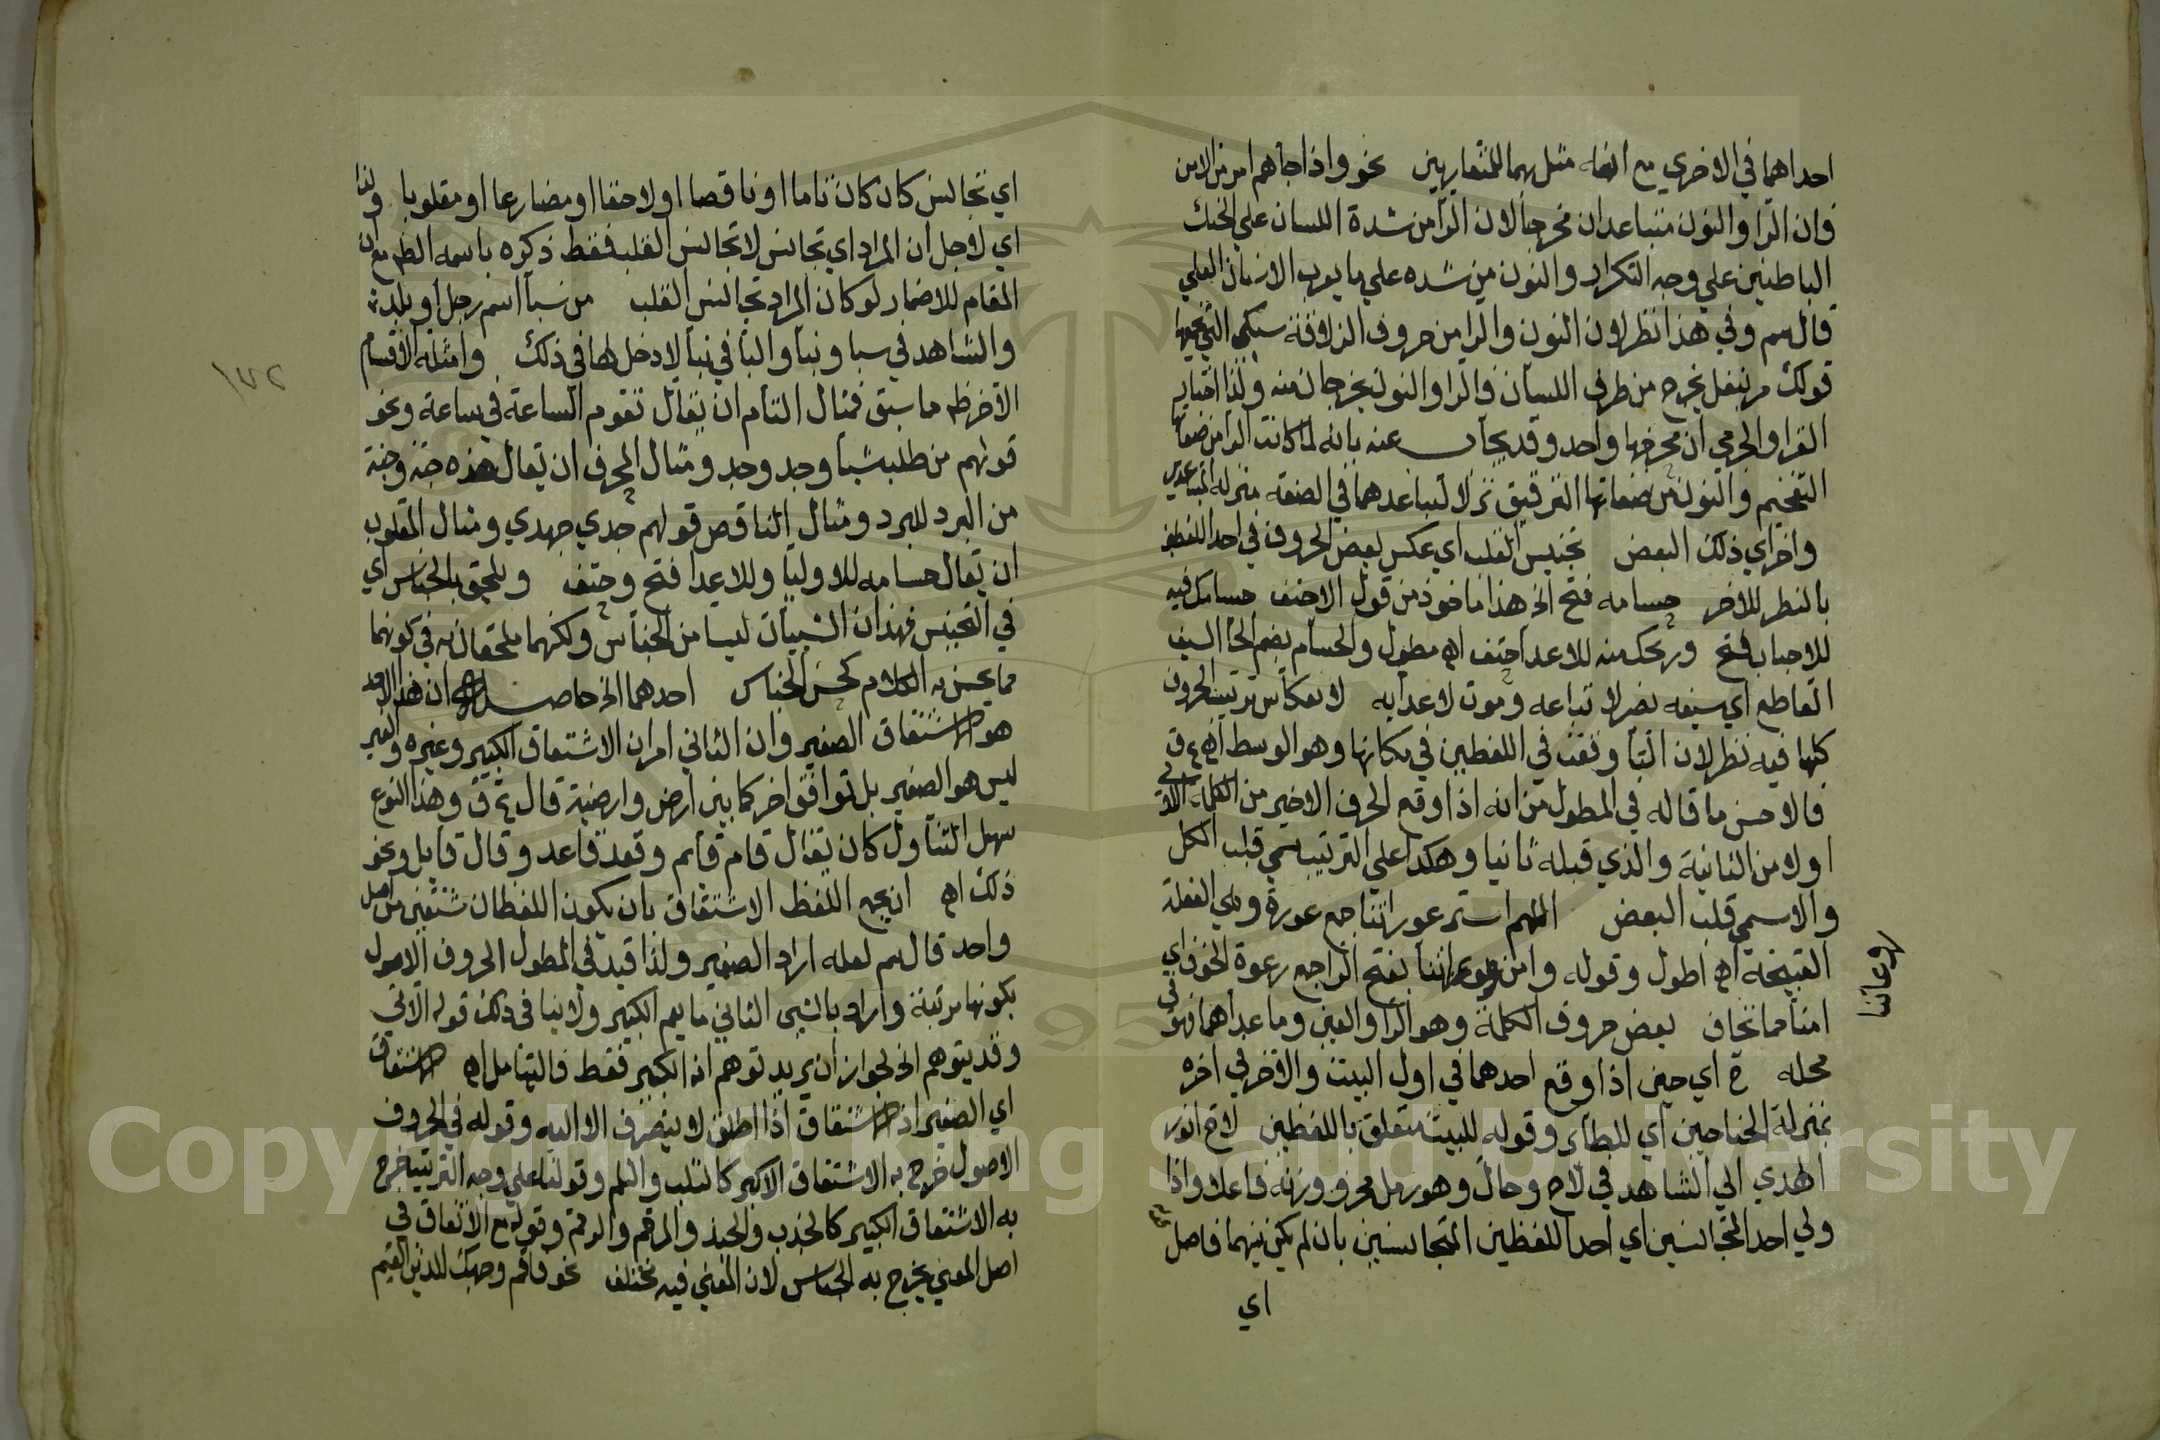 احداهما في الاخري مع انه مثل بهما للمتقاربين نحو واذا جاءهم امر من الامن
فان الرا والنون متباعدان مخرجا لان الرا من شدة اللسان علي الحنك
الباطنين علي وجه التكرار والنون من شده علي ما يورب الاسنان العلي
قال سم وفي هذا نظر لان النون والرا من حروف الزلاقة التي يجمعها
قولك مر بنفل يخرج من طرف اللسان فالرا والنون يخرجان منه ولذا اختار
الفرا والجرمي ان مخرجها واحد وقد يجاب عنه بانه لما كانت الرا من صفاتها
التفخيم والنون من صفاتها الترقيق نزلا لتباعدهما في الصفة منزلة المتباعدين
واخر اي ذلك البعض تجنيس القلب اي عكس بعض الحروف في احد اللفظين
بالنظر للاخر حسامه فتح الخ هذا ماخوذ من قول الاحنف حسامك فيه
للاحباب فتح ورمحك منه للاعدا حتف اه مطول والحسام بضم الحا السيف
القاطع اي سيفه نصر لاتباعه وموت لاعدايه لانعكاس ترتيب الحروف
كلها فيه نظر لان التا وقفت في اللفظين في مكانها وهو الوسط اه ع ق
فالاحسن ما قاله في المطول من انه اذا وقع الحرف الاخير من الكلمة الاولي
اولا من الثانية والذي قبله ثانيا وهكذا علي الترتيب سمي قلب الكل
والا سمي قلب البعض اللهم استر عوراتنا جمع عورة وهي الفعلة
القبيحة اه اطول وقوله وامن روعاتنا بفتح الرا جمع روعة الخوف اي
امنا مما نخاف بعض حروف الكلمة وهو الرا والعين وما عداهما فهو في
روعاتنا
محله ع اي حين اذا وقع احدهما في اول البيت والاخر في اخره
بمنزلة الجناحين اي للطائر وقوله للبيت متعلق باللفظين لاح انوار
الهدي الي الشاهد في لاح وحال وهو رمل محزو وزنه فاعلا واذا
ولي احد المتجانسين اي احد اللفظين المتجانسين بان لم يكن بينهما فاصل
اي
اي تجانس كان كان تاما او ناقصا او لاحقا او مضارعا او مقلوبا ولذا
اي لاجل ان المراد اي تجانس لا تجانس القلب فقط ذكره باسمه الظاهر مع ان
المقام للاضمار لو كان المراد تجانس القلب من سبا اسم رجل او بلدة
والشاهد في سبا ونبا والبا في نبا لا دخل لها في ذلك وامثلة الاقسام
١٧٢
الاخر ظاهر ما سبق فمثال التام ان يقال تقوم الساعة في ساعة ونحو
قولهم من طلب شيا وجد وجد ومثال المحرف ان يقال هذه جنة وجنة
من البرد للبرد ومثال الناقص قولهم جدي جهدي ومثال المقلوب
ان يقال حسامه للاوليا وللاعدا فتح وحتف ويلحق بالجناس اي
في التجنيس فهذان الشيان ليسا من الجناس ولكنهما ملحقان به في كونهما
مما يحسن به الكلام كحسن الجناس احدهما الخ حاصله ان هذا الاحد
هو الاشتقاق الصغير وان الثاني امران الاشتقاق الكبير وغيره والغير
ليس هو الصغير بل توافق اخر كما بين ارض وارضية قال ع ق وهذا النوع
سهل التناول كان يقال قام قائم وقعد قاعد وقال قايل ونحو
ذلك اه ان يجمع اللفظ الاشتقاق بان يكون اللفظان مشتقين من اصل
واحد قال سم لعله اراد الصغير ولذا قيد في المطول الحروف الاصول
بكونها مرتبة واراد بالشي الثاني ما يعم الكبير ولا ينافي ذلك قوله الاتي
وقد يتوهم الخ لجواز ان يريد توهم انه الكبير فقط فاليتامل اه الاشتقاق
اي الصغير اذ الاشتقاق اذا اطلق لا ينصرف الا اليه وقوله في الحروف
الاصول خرج به الاشتقاق الاكبر كالثلب والثلم وقولنا علي وجه الترتيب خرج
به الاشتقاق الكبير كالجذب والجبذ والرقم والرمق وقوله مع الاتفاق في
اصل المعني يخرج به الجناس لان المعني فيه مختلف نحو فاقم وجهك للدين القيم